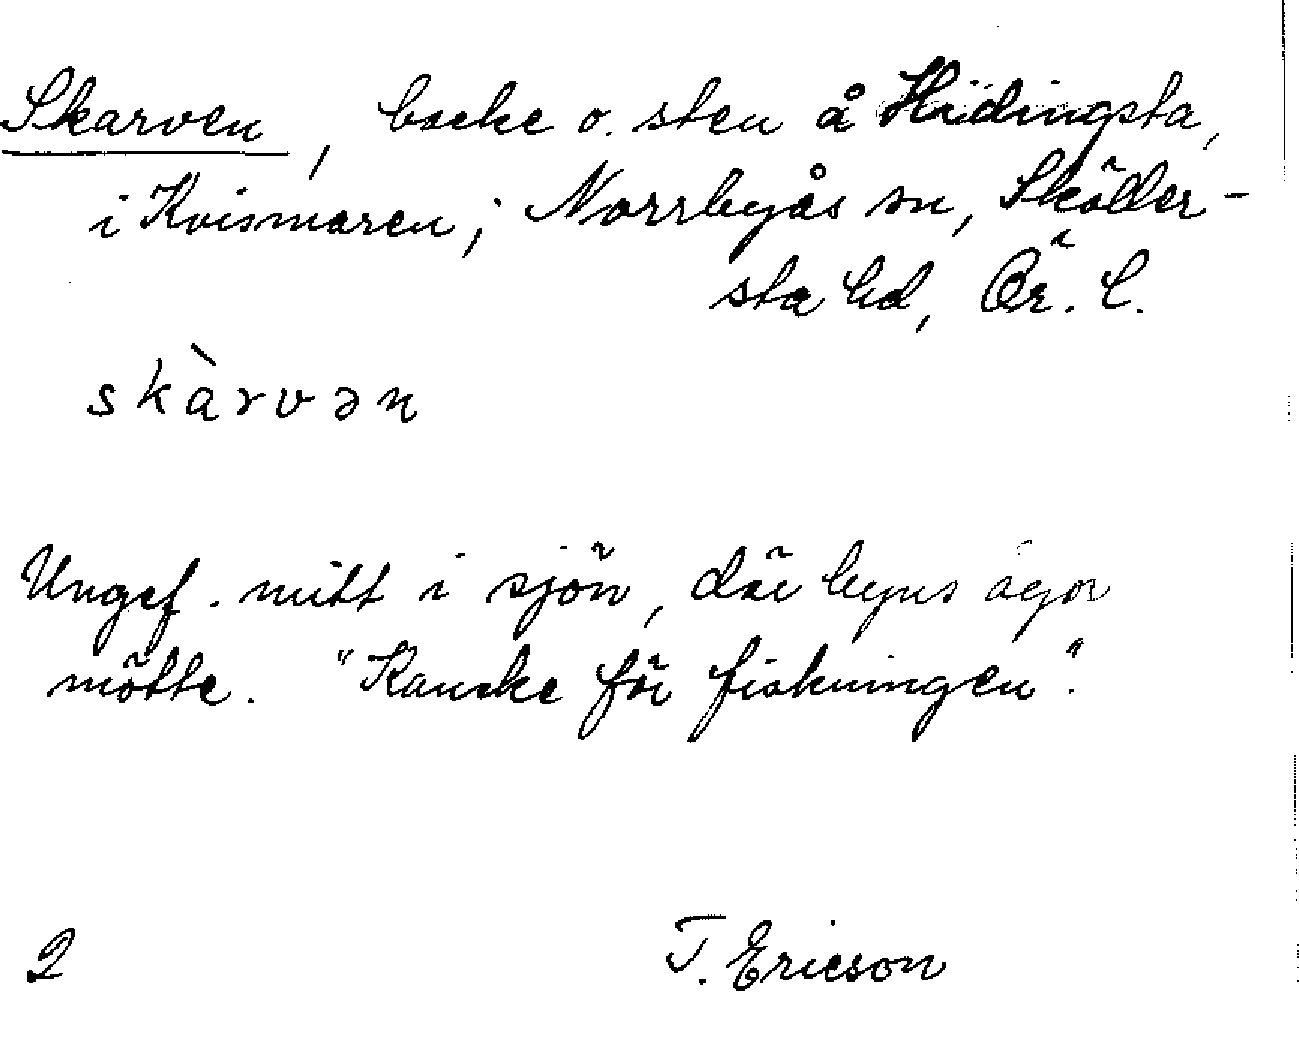 Skarven, backe o. sten å Hidingsta,
i Kvismaren; Norrbyås sn, Sköller-
sta hd, Ör. l.
skàrvən
Ungef. mitt i sjön, där byns ägor
mötte. "Kanske för fiskningen".
2 T. Ericson